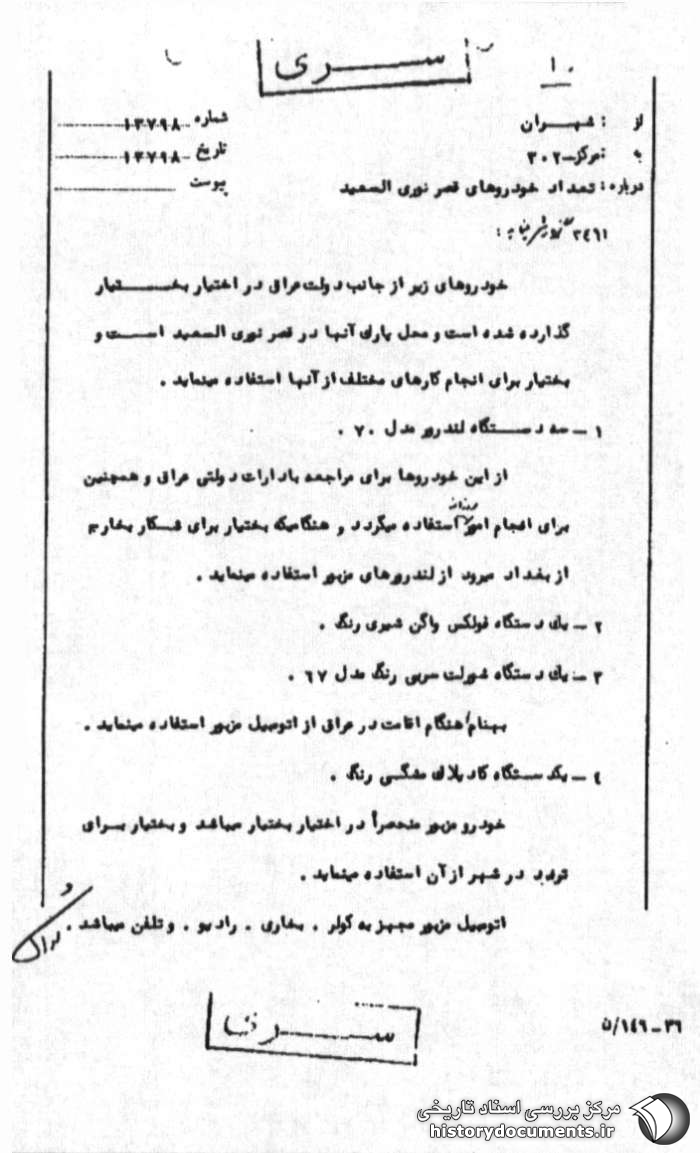 سـری
۱۰
از : شهـران
به : مرکز-۳۰۲
درباره : تعداد خودروهای قصر نوری السعید
شماره ۱۳۷۹۸
تاریخ ۱۳۷۹۸
پیوست
۲٤٦۱
خودروهای زیر از جانب دولت عراق در اختیار بختیار
گذارده شده است و محل پارک آنها در قصر نوری السعید است و
بختیار برای انجام کارهای مختلف از آنها استفاده مینماید .
۱ - سه دستگاه لندرور مدل ۷۰ .
از این خودروها برای مراجعه بادارات دولتی عراق و همچنین
برای انجام امور روزانه استفاده میگردد و هنگامیکه بختیار برای شکار بخارج
از بغداد میرود از لندرورهای مزبور استفاده مینماید .
۲ - یک دستگاه فولکس واگن شیری رنگ .
۳ - یک دستگاه شورلت سربی رنگ مدل ٦۷ .
بهنام هنگام اقامت در عراق از اتومبیل مزبور استفاده مینماید .
٤ - یکدستگاه کادیلاک مشگی رنگ .
خودرو مزبور منحصراً در اختیار بختیار میباشد و بختیار برای
تردد در شهر از آن استفاده مینماید .
اتومبیل مزبور مجهز به کولر . بخاری . رادیو . و تلفن میباشد .
سـری
۳٦ - ۱٤٦/ن
مرکز بررسی اسناد تاریخی
historydocuments.ir